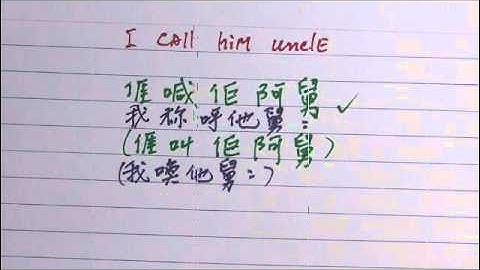 I CAll hiM UnclE
𠊎喊佢阿舅 ✓
我称呼他舅:
(𠊎叫佢阿舅)
(我喚他舅:)